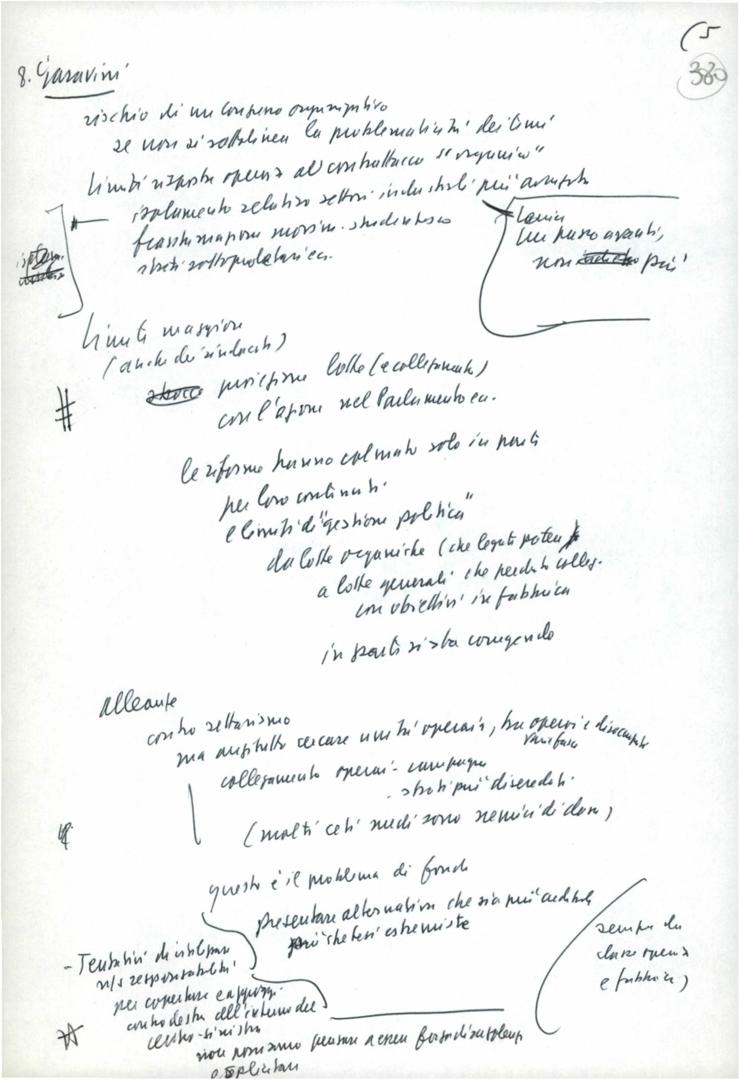 (5
380
8. Garavini
rischio di un consenso organizzativo
se non si sottolinea la problematicità dei temi
limiti risposta operaia al contrattacco "organico"
isolamento relativo settori industriali più avanzati
frantumazione movim. studentesco
strati sottoproletari ecc.
Lama
un passo avanti,
non più
Limiti maggiori
(anche dei sindacati)
proiezione lotte (e collegamento)
con l'azione nel Parlamento ecc.
le riforme hanno colmato solo in parte
per loro contenuti
e limiti di "gestione politica"
da lotte organiche (che legati
a lotte generali che perduti colleg.
con obiettivi in fabbrica
in parte si sta correggendo
alleanze
contro settarismo
ma anzitutto cercare unità operaia, tra operai e disoccupati
collegamento operai - campagna
strati più diseredati
(molti ceti medi sono nemici di classe)
questo è il problema di fondo
presentare alternativa che sia più credibile
più che tesi estremiste
- Tentativi di
ns/ responsabilità
per coperture e appoggi
contro destra all'interno del
centro-sinistra
non possiamo pensare a
esplicitare
sempre da
classe operaia
e fabbrica)